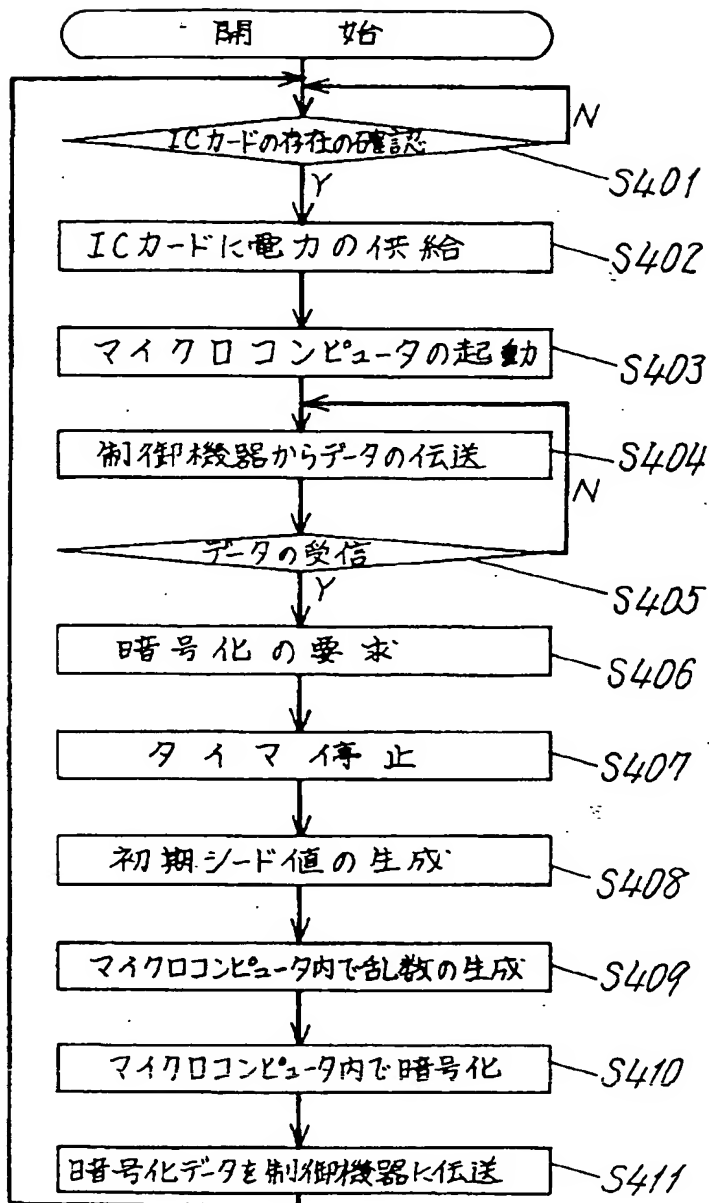 開 始
N
ICカードの存在の確認
S401
Y
ICカードに電力の供給
S402
マイクロコンピュータの起動
S403
制御機器からデータの伝送
S404
N
データの受信
S405
Y
暗号化の要求
S406
タイマ停止
S407
初期シード値の生成
S408
マイクロコンピュータ内で乱数の生成
S409
マイクロコンピュータ内で暗号化
S410
暗号化データを制御機器に伝送
S411